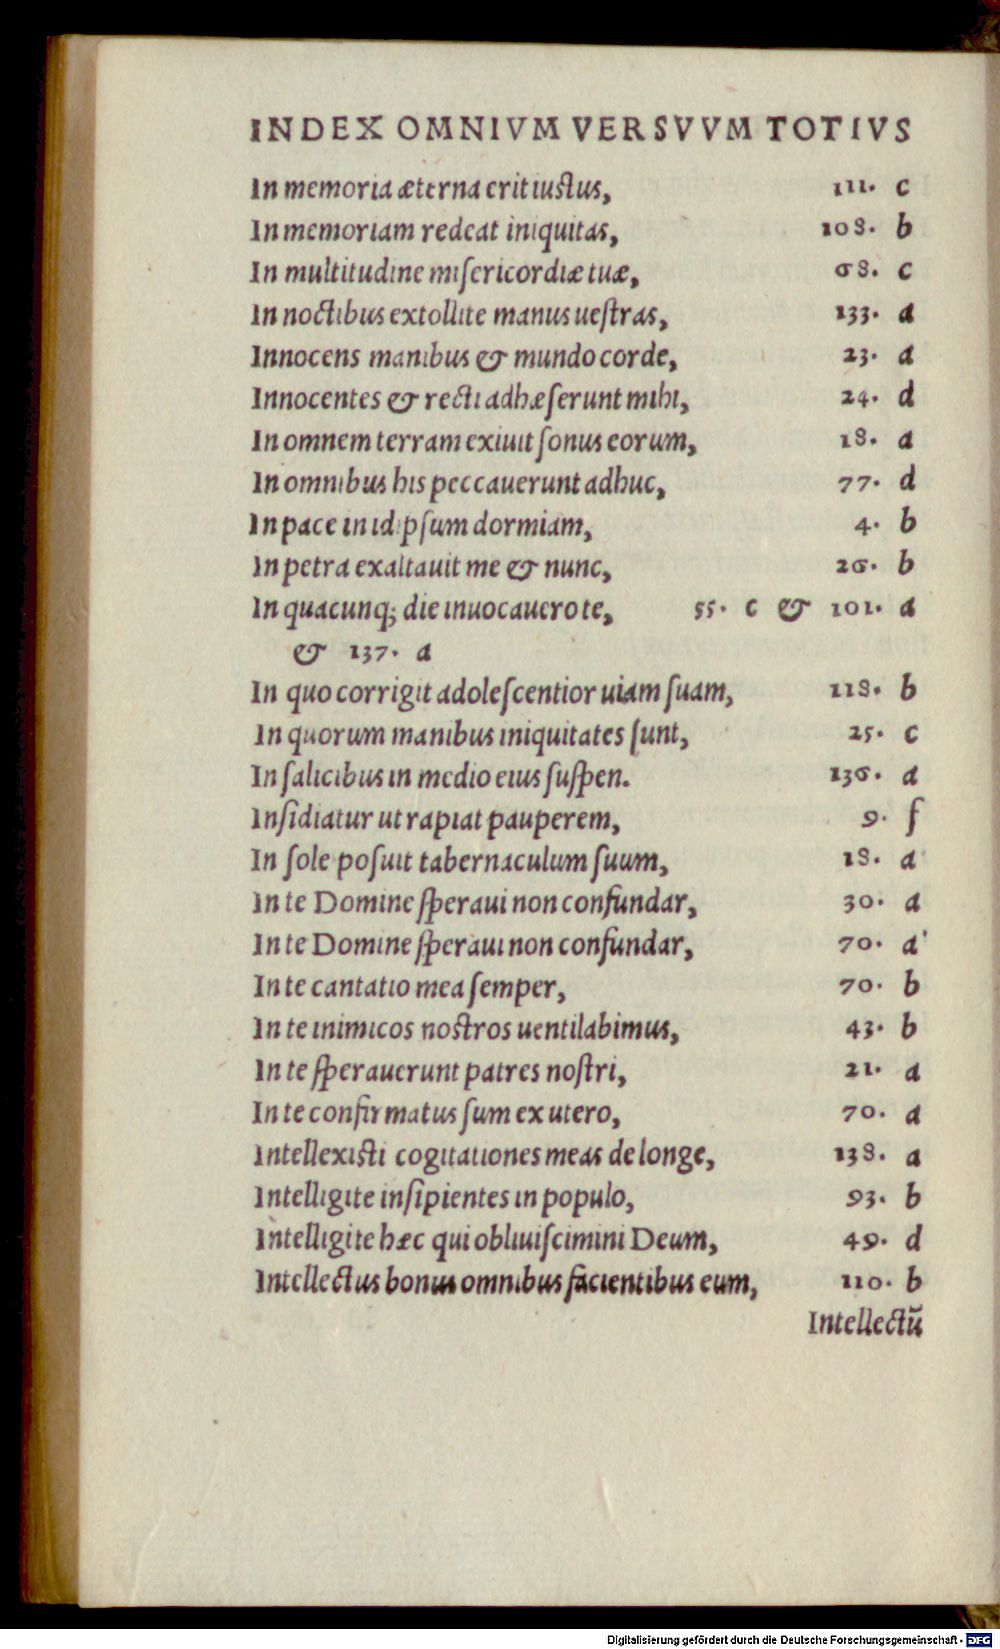 INDEX OMNIVM VERSVVM TOTIVS
In memoria æterna erit iustus, 111. c
In memoriam redeat iniquitas, 108. b
In multitudine misericordiæ tuæ, 68. c
In noctibus extollite manus uestras, 133. a
Innocens manibus & mundo corde, 23. a
Innocentes & recti adhæserunt mihi, 24. d
In omnem terram exiuit sonus eorum, 18. a
In omnibus his peccauerunt adhuc, 77. d
In pace in idipsum dormiam, 4. b
In petra exaltauit me & nunc, 26. b
In quacunq; die inuocauero te, 55. c & 101. a
& 137. a
In quo corrigit adolescentior uiam suam, 118. b
In quorum manibus iniquitates sunt, 25. c
In salicibus in medio eius suspen. 136. a
Insidiatur ut rapiat pauperem, 9. f
In sole posuit tabernaculum suum, 18. a
In te Domine speraui non confundar, 30. a
In te Domine speraui non confundar, 70. a
In te cantatio mea semper, 70. b
In te inimicos nostros uentilabimus, 43. b
In te sperauerunt patres nostri, 21. a
In te confirmatus sum ex utero, 70. a
Intellexisti cogitationes meas de longe, 138. a
Intelligite insipientes in populo, 93. b
Intelligite hæc qui obliuiscimini Deum, 49. d
Intellectus bonus omnibus facientibus eum, 110. b
Intellectū
Digitalisierung gefördert durch die Deutsche Forschungsgemeinschaft - DFG